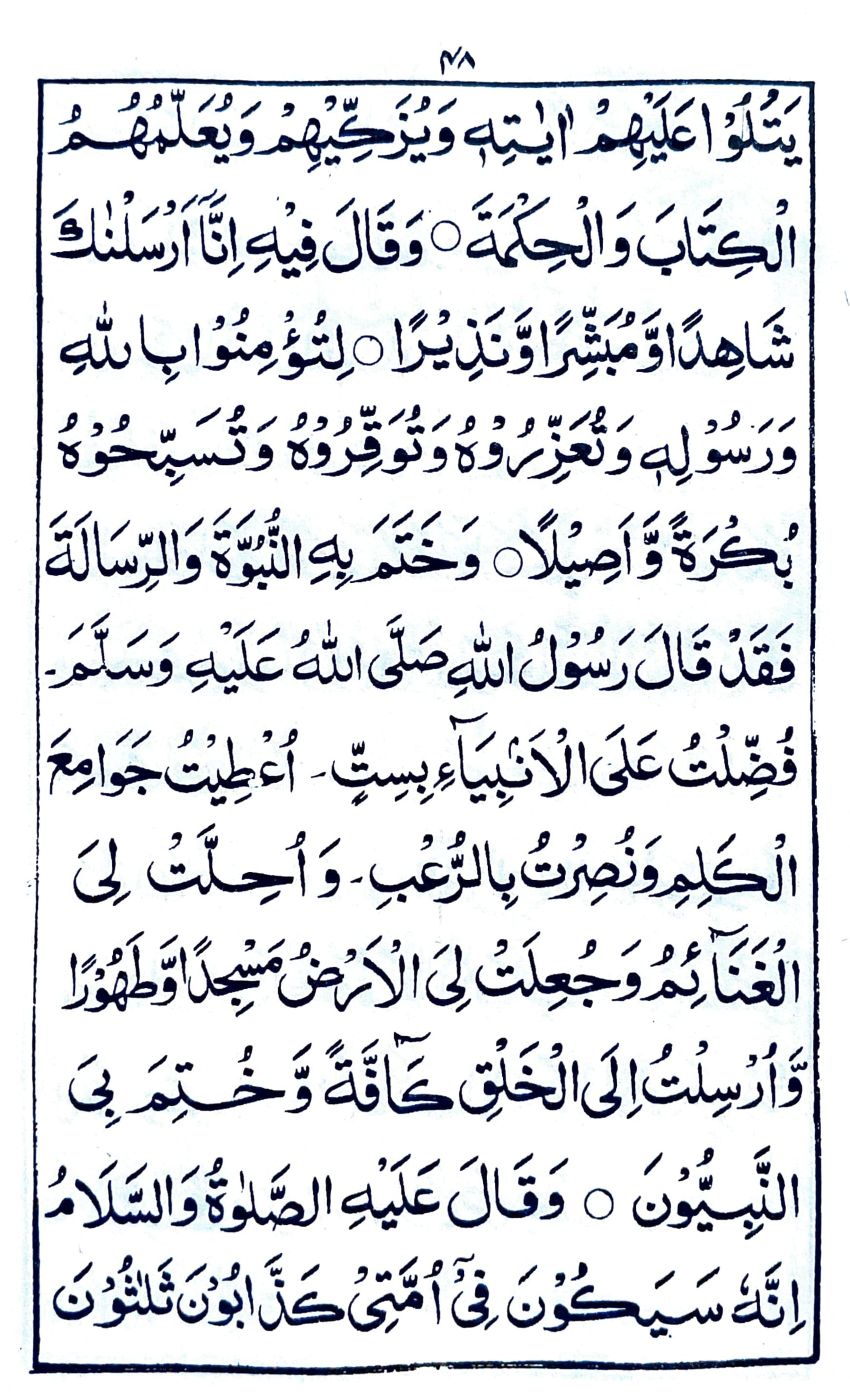 ۴۸
يَتْلُوْا عَلَيْهِمْ اٰيٰتِهٖ وَيُزَكِّيْهِمْ وَيُعَلِّمُهُمُ
الْكِتَابَ وَالْحِكْمَةَ ○ وَقَالَ فِيْهِ اِنَّآ اَرْسَلْنٰكَ
شَاهِدًا وَّمُبَشِّرًا وَّنَذِيْرًا ○ لِتُؤْمِنُوْا بِاللّٰهِ
وَرَسُوْلِهٖ وَتُعَزِّرُوْهُ وَتُوَقِّرُوْهُ وَتُسَبِّحُوْهُ
بُكْرَةً وَّاَصِيْلًا ○ وَخَتَمَ بِهِ النُّبُوَّةَ وَالرِّسَالَةَ
فَقَدْ قَالَ رَسُوْلُ اللّٰهِ صَلَّى اللّٰهُ عَلَيْهِ وَسَلَّمَ۔
فُضِّلْتُ عَلَى الْاَنْبِيَآءِ بِسِتٍّ۔ اُعْطِيْتُ جَوَامِعَ
الْكَلِمِ وَنُصِرْتُ بِالرُّعْبِ۔ وَاُحِلَّتْ لِىَ
الْغَنَآئِمُ وَجُعِلَتْ لِىَ الْاَرْضُ مَسْجِدًا وَّطَهُوْرًا
وَّاُرْسِلْتُ اِلَى الْخَلْقِ كَآفَّةً وَّخُتِمَ بِىَ
النَّبِيُّوْنَ ○ وَقَالَ عَلَيْهِ الصَّلٰوةُ وَالسَّلَامُ
اِنَّهٗ سَيَكُوْنَ فِىْٓ اُمَّتِىْ كَذَّابُوْنَ ثَلٰثُوْنَ